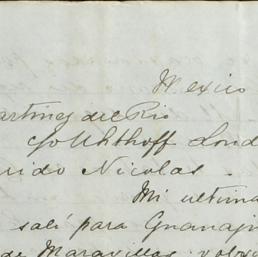 Mexico
artinez del Rio
c/o Uhthoff Lond
rido Nicolas.
Mi ultima
sali para Guanaju
de Maravillas